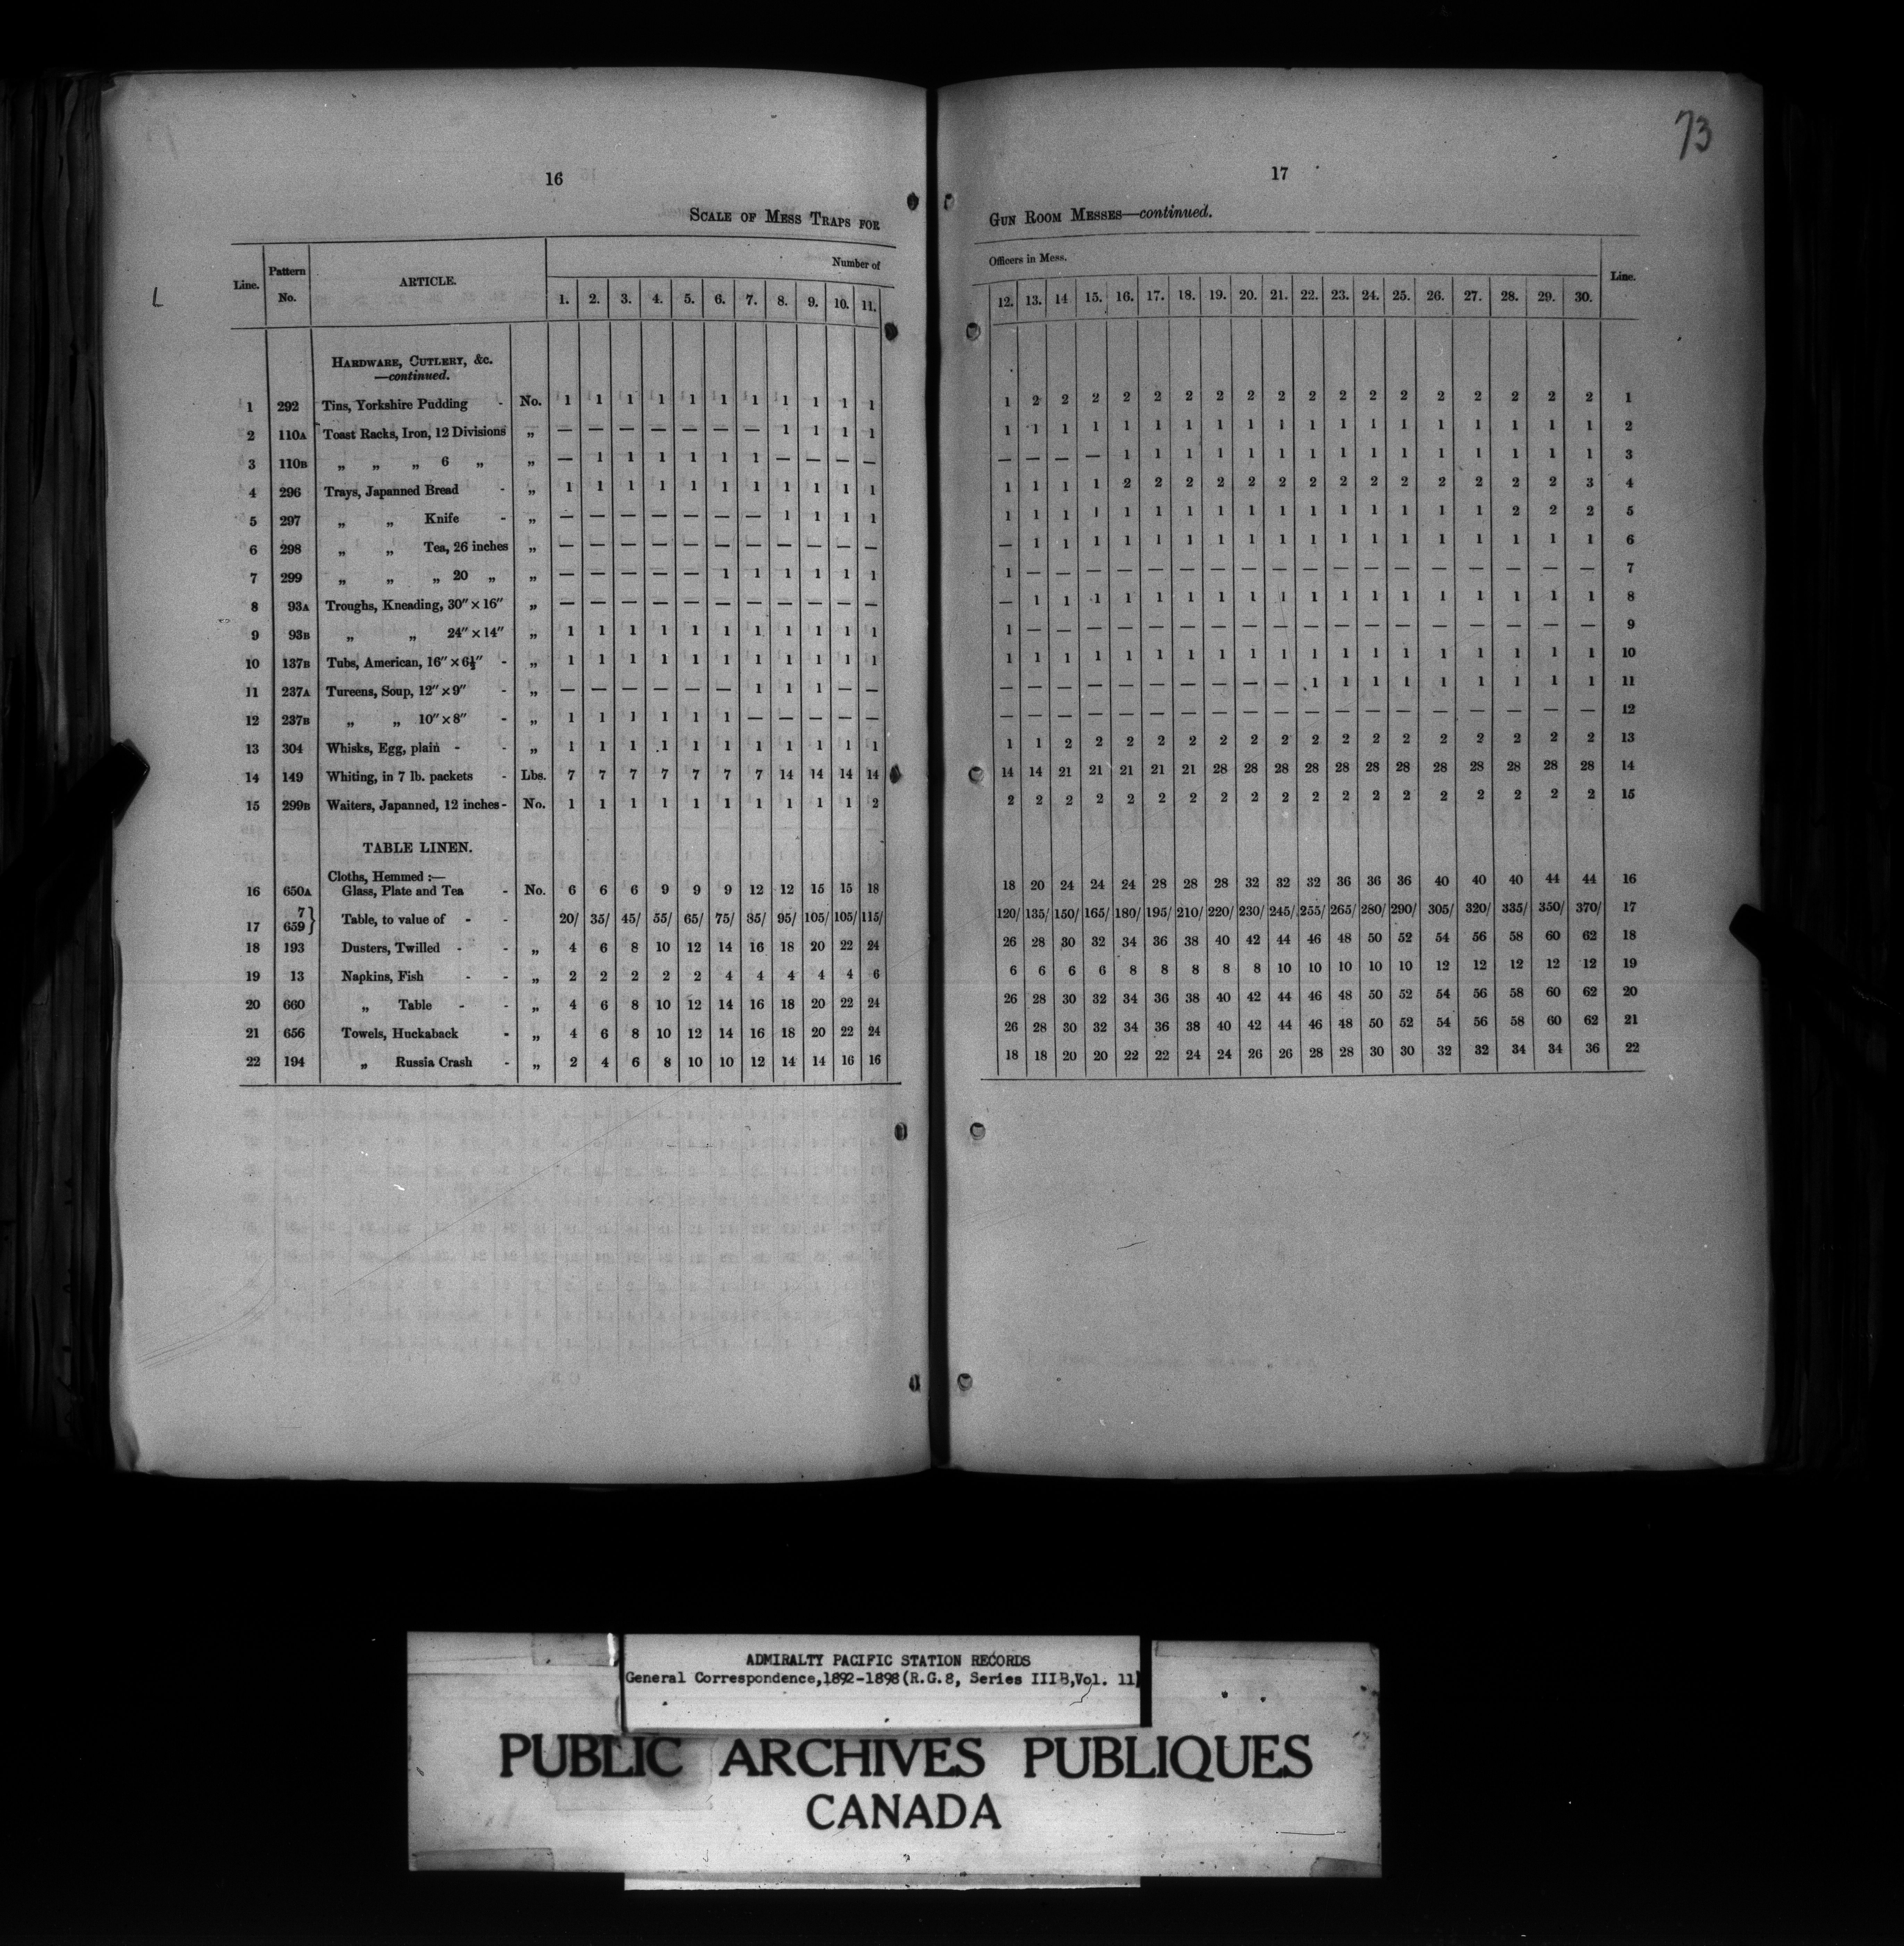 73
16
SCALE OF MESS TRAPS FOR
Line. Pattern No. ARTICLE. Number of
1. 2. 3. 4. 5. 6. 7. 8. 9. 10. 11.
HARDWARE, CUTLERY, &c.
—continued.
1 292 Tins, Yorkshire Pudding - No. 1 1 1 1 1 1 1 1 1 1 1
2 110A Toast Racks, Iron, 12 Divisions „ — — — — — — — 1 1 1 1
3 110B „ „ „ 6 „ „ — 1 1 1 1 1 1 — — — —
4 296 Trays, Japanned Bread - „ 1 1 1 1 1 1 1 1 1 1 1
5 297 „ „ Knife - „ — — — — — — — 1 1 1 1
6 298 „ „ Tea, 26 inches „ — — — — — — — — — — —
7 299 „ „ „ 20 „ „ — — — — — 1 1 1 1 1 1
8 93A Troughs, Kneading, 30″ × 16″ „ — — — — — — — — — — —
9 93B „ „ 24″ × 14″ „ 1 1 1 1 1 1 1 1 1 1 1
10 137B Tubs, American, 16″ × 6½″ - „ 1 1 1 1 1 1 1 1 1 1 1
11 237A Tureens, Soup, 12″ × 9″ - „ — — — — — — 1 1 1 — —
12 237B „ „ 10″ × 8″ - „ 1 1 1 1 1 1 — — — — —
13 304 Whisks, Egg, plain - - „ 1 1 1 1 1 1 1 1 1 1 1
14 149 Whiting, in 7 lb. packets - Lbs. 7 7 7 7 7 7 7 14 14 14 14
15 299B Waiters, Japanned, 12 inches - No. 1 1 1 1 1 1 1 1 1 1 2
TABLE LINEN.
Cloths, Hemmed :—
16 650A Glass, Plate and Tea - No. 6 6 6 9 9 9 12 12 15 15 18
17 7 659} Table, to value of - - 20/ 35/ 45/ 55/ 65/ 75/ 85/ 95/ 105/ 105/ 115/
18 193 Dusters, Twilled - - „ 4 6 8 10 12 14 16 18 20 22 24
19 13 Napkins, Fish - - „ 2 2 2 2 2 4 4 4 4 4 6
20 660 „ Table - - „ 4 6 8 10 12 14 16 18 20 22 24
21 656 Towels, Huckaback - „ 4 6 8 10 12 14 16 18 20 22 24
22 194 „ Russia Crash - „ 2 4 6 8 10 10 12 14 14 16 16
17
GUN ROOM MESSES—continued.
Officers in Mess. Line.
12. 13. 14 15. 16. 17. 18. 19. 20. 21. 22. 23. 24. 25. 26. 27. 28. 29. 30.
1 2 2 2 2 2 2 2 2 2 2 2 2 2 2 2 2 2 2 1
1 1 1 1 1 1 1 1 1 1 1 1 1 1 1 1 1 1 1 2
— — — — 1 1 1 1 1 1 1 1 1 1 1 1 1 1 1 3
1 1 1 1 2 2 2 2 2 2 2 2 2 2 2 2 2 2 3 4
1 1 1 1 1 1 1 1 1 1 1 1 1 1 1 1 2 2 2 5
— 1 1 1 1 1 1 1 1 1 1 1 1 1 1 1 1 1 1 6
1 — — — — — — — — — — — — — — — — — — 7
— 1 1 1 1 1 1 1 1 1 1 1 1 1 1 1 1 1 1 8
1 — — — — — — — — — — — — — — — — — — 9
1 1 1 1 1 1 1 1 1 1 1 1 1 1 1 1 1 1 1 10
— — — — — — — — — — 1 1 1 1 1 1 1 1 1 11
— — — — — — — — — — — — — — — — — — — 12
1 1 2 2 2 2 2 2 2 2 2 2 2 2 2 2 2 2 2 13
14 14 21 21 21 21 21 28 28 28 28 28 28 28 28 28 28 28 28 14
2 2 2 2 2 2 2 2 2 2 2 2 2 2 2 2 2 2 2 15
18 20 24 24 24 28 28 28 32 32 32 36 36 36 40 40 40 44 44 16
120/ 135/ 150/ 165/ 180/ 195/ 210/ 220/ 230/ 245/ 255/ 265/ 280/ 290/ 305/ 320/ 335/ 350/ 370/ 17
26 28 30 32 34 36 38 40 42 44 46 48 50 52 54 56 58 60 62 18
6 6 6 6 8 8 8 8 8 10 10 10 10 10 12 12 12 12 12 19
26 28 30 32 34 36 38 40 42 44 46 48 50 52 54 56 58 60 62 20
26 28 30 32 34 36 38 40 42 44 46 48 50 52 54 56 58 60 62 21
18 18 20 20 22 22 24 24 26 26 28 28 30 30 32 32 34 34 36 22
ADMIRALTY PACIFIC STATION RECORDS
General Correspondence,1892-1898(R.G.8, Series IIIB,Vol. 11)
PUBLIC ARCHIVES PUBLIQUES
CANADA